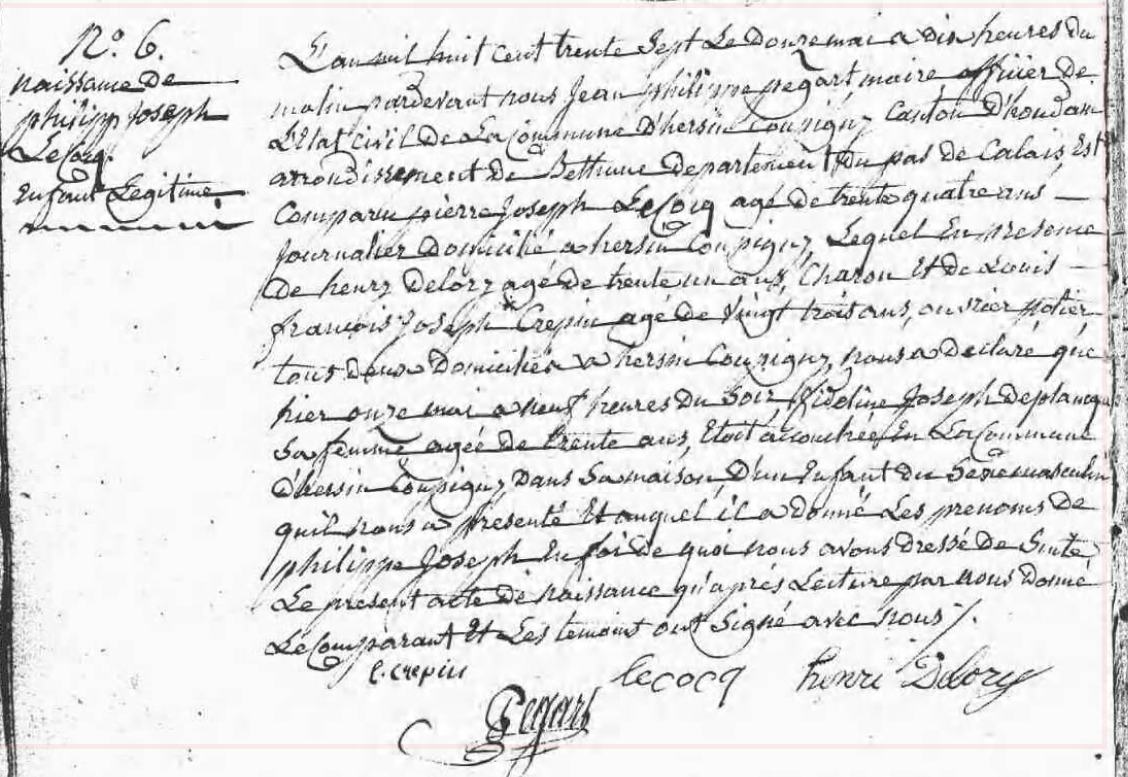 N.o 6.
naissance de
philipp Joseph
LeCocq.
Enfant Legitime
L'an mil huit cent trente Sept Le Douze mai a dix heures du
matin pardevant nous Jean philippe pegart maire officier de
L'Etat Civil de La Commune D'hersin Coupigny Canton D'houdain
arrondissement de Bethune departement Du pas de Calais, Est
Comparu pierre Joseph LeCocq agé de trente quatre ans
Journalier Domicilié a hersin Coupigny, Lequel En presence
De henry Delory agé de trente un ans, Charon Et de Louis
françois Joseph Crepin agé de Vingt trois ans, ouvrier potier
tous deux Domiciliés a hersin Coupigny, nous a Declaré que
hier onze mai a neuf heures Du Soir, fideline Joseph deplancque
Sa femme agée de trente ans, Etoit acouchée En La Commune
d'hersin Coupigny Dans Sa maison, D'un Enfant Du Sexe masculin
quil nous a presenté Et auquel il a Donné Les prenoms de
philippe Joseph En foi de quoi nous avons Dressé De Suite
Le present acte de naissance qu'aprés Lecture par nous Donné
Le Comparant Et Les temoins ont Signé avec nous ./.
l. crepin
lecocq
henri Delory
Pegart